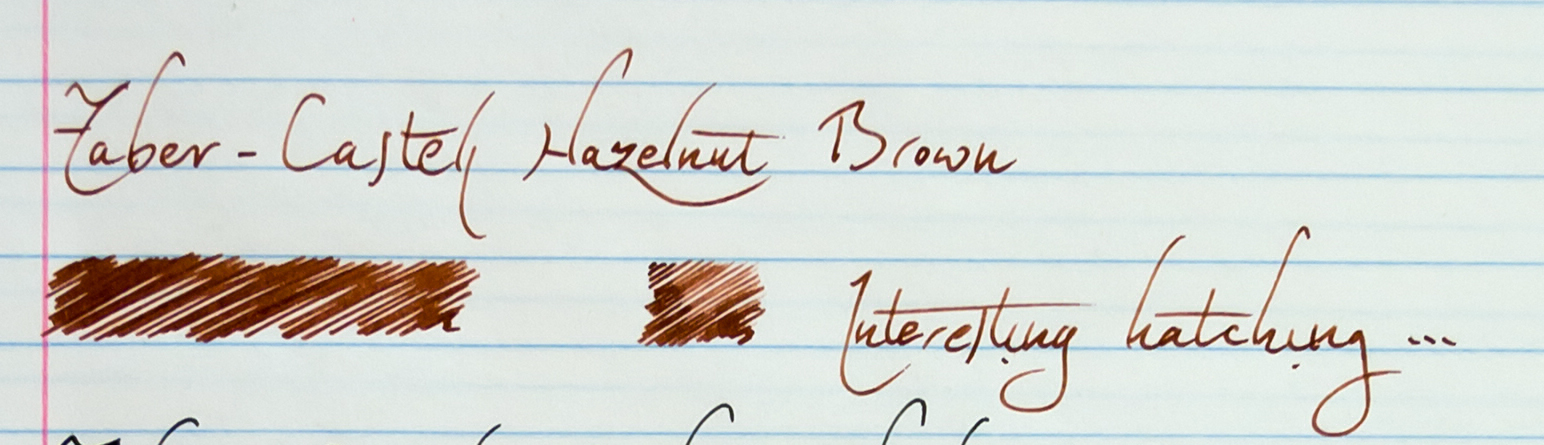 Faber-Castell Hazelnut Brown
Interesting hatching...